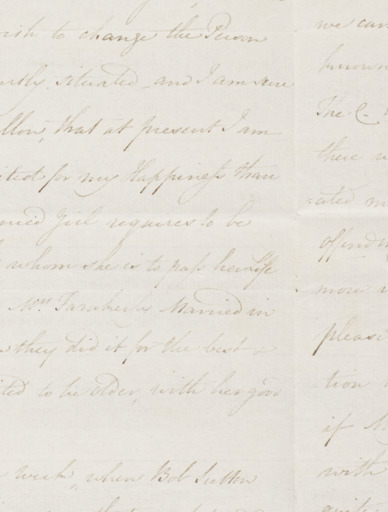 wish to change the Person
situated and I am sure
that at present I am
for my Happiness than
Girl requires to be
whom she is to pass her life
Mrs Married in
they did it for the best
to be Older, with her good
week, when Bob Sutton
we can
known
The C.
there
ated
offend
more
please
tion
if
with